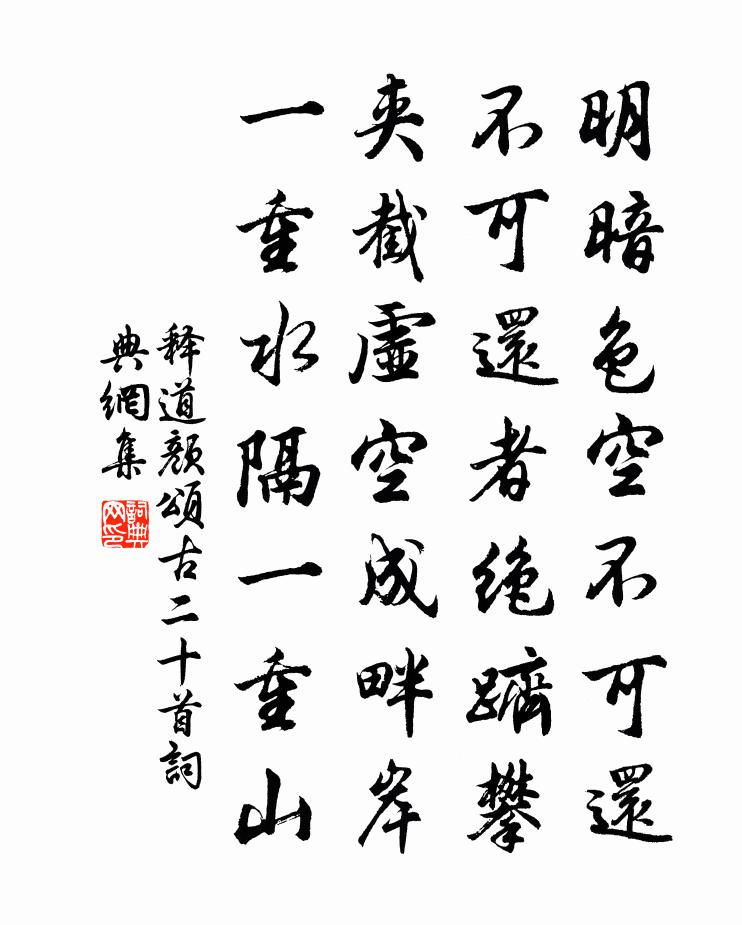 明暗色空不可還
不可還者絶躋攀
夾截虛空成畔岸
一重水隔一重山
释道颜頌古二十首詞
典網集
詞典
网印